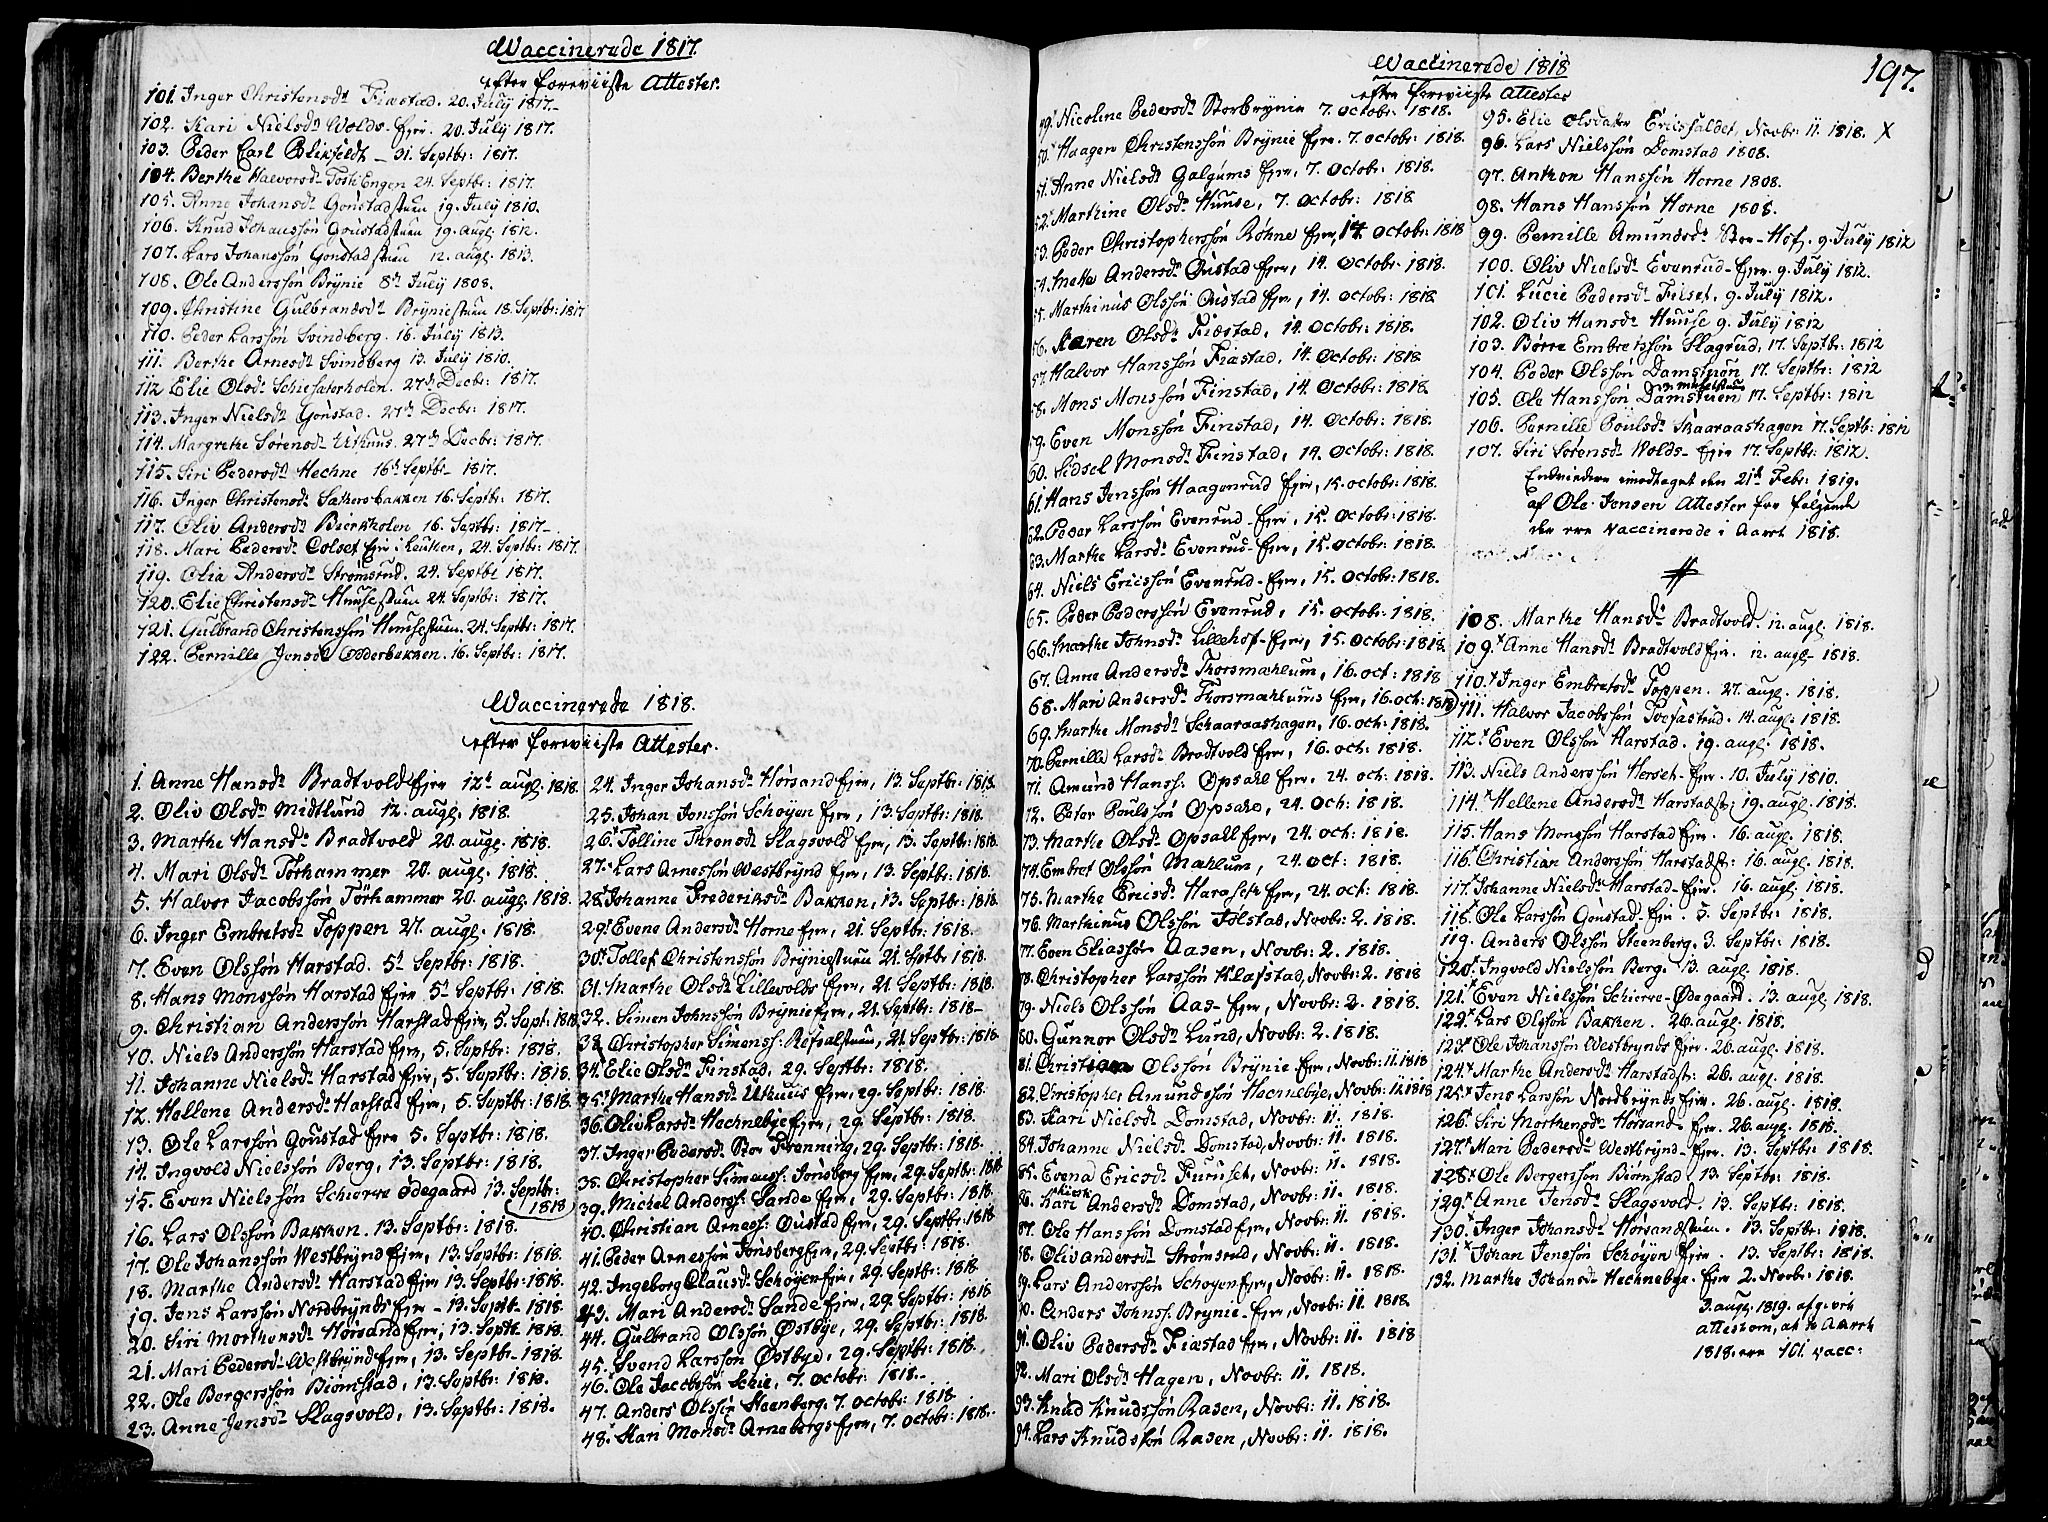 Vaccinerede 1817.
efter foreviiste Attester.
101. Inger Christensdr Fiæstad. 20. July 1817.
102. Kari Nielsdr Wolds-Ejer. 20. July 1817.
103. Peder Carl Blixfeldt _ 31. Septbr: 1817.
104. Berthe Halvorsdr TostiEngen 24. Septbr: 1817.
105. Anne Johansdr Gonstadstuen 19. July 1810.
106. Knud Johanssön Gonstadstuen 19. Augl. 1812.
107. Lars Johanssön Gonstadstuen 12. augl. 1813.
108. Ole Anderssön Brynie 8de July 1808.
109. Christine Gulbrandsdr Bryniestuen 18. Septbr: 1817
110. Peder Larssön Svindberg. 16. July 1813.
111. Berthe Arnesdr Svindberg 13. July 1810.
112 Elie Olsdr 27de Decbr: 1817.
113. Inger Nielsdr Gonstad. 27de Decbr: 1817.
114. Margrethe Sörensdr Uthuus. 27de Decbr: 1817.
115. Siri Pedersdr Hechne 16de Septbr_ 1817.
116. Inger Christensdr Sætersbakken 16. Septbr: 1817.
117. Oliv Andersdr Bierkholen 16. Septbr: 1817_
118. Mari Pedersdr Colset Ejer i Leuten, 24. Septbr: 1817.
119. Olia Andersdr Strömsrud. 24. Septbr 1817.
120. Elie Christensdr Huusestuen 24. Septbr: 1817.
121. Gulbrand Christenssön Huusestuen. 24. Septbr: 1817.
122. Pernille Jensdr Odderbakken. 16. Septbr: 1817.
Vaccinerede 1818.
efter foreviiste Attester.
1. Anne Hansdr Bradtvold Ejer 12de augl. 1818.
2. Oliv Olsdr Midtlund 12. augl. 1818.
3. Marthe Hansdr Bradtvold 20. augl. 1818.
4. Mari Olsdr Törhammer 20. augl. 1818.
5. Halvor Jacobssön Törhammer 20. augl. 1818.
6. Inger Embretsdr Toppen 27. augl. 1818.
7. Even Olssön Harstad. 5te Septbr: 1818.
8. Hans Monssön Harstad Ejer 5te Septbr: 1818.
9. Christian Anderssön Harstad Ejer, 5. Sept: 1818.
10. Niels Anderssön Harstad Ejer, 5. Septbr: 1818.
11. Johanne Nielsdr Harstad Ejer, 5. Septbr: 1818.
12. Hellene Andersdr Harstad Ejer, 5. Septbr: 1818.
13. Ole Larssön Gonstad Ejer 5. Septbr: 1818.
14. Ingvold Nielssön Berg, 13. Septbr: 1818.
15. Even Nielssön Schierre Ødegaard 13. Septbr:
1818
16. Lars Olssön Bakken. 13. Septbr: 1818.
17. Ole Johanssön Westbrynd Ejer, 13. Septbr: 1818.
18. Marthe Andersdr Harstad Ejer 13. Septbr: 1818.
19. Jens Larssön Nordbrynds Ejer _ 13. Septb_ 1818.
20. Siri Morthensdr Hörsand Ejer, 13. Septb. 1818.
21. Mari Pedersdr Westbrynd Ejer, 13. Septbr_ 1818.
22. Ole Bergerssön Biörnstad, 13. Septbr: 1818.
23. Anne Jensdr Slagsvold, 13. Septbr: 1818.
24. Inger Johansdr Hörsand Ejer, 13. Septbr. 1818.
25. Johan Jenssön Schöyen Ejer, 13. Septbr: 1818.
26. Tolline Thronsdr Slagsvold Ejer, 13. Septbr: 1818.
27. Lars Arnessön Westbrynd Ejer, 13. Septbr: 1818.
28. Johanne Frederiksdr Bakken, 13. Septbr: 1818.
29. Evene Andersdr Horne Ejer, 21. Septbr: 1818.
30. Tollef Christenssön Bryniestuen 21. Septbr 1818.
31. Marthe Olsdr Lillevolds Ejer, 21. Septbr: 1818.
32. Simen Johnssön Brynie Ejer, 21. Septbr: 1818_
33. Christopher Simenss: Refsalstuen, 21. Septbr: 1818.
34. Elie Olsdr Finstad, 29. Septbr: 1818.
35. Marthe Hansdr Uthuus Ejer, 29. Septbr: 1818.
36. Oliv Larsdr Hechnebye Ejer, 29. Septbr: 1818.
37. Inger Pedersdr Stor Frenning, 29. Septbr: 1818.
38. Christopher Simenss: Jonsberg Ejer, 29. Septbr: 1818
39. Michel Anderss: Sande Ejer, 29. Septbr: 1818.
40. Christian Arness: Oustad Ejer, 29. Septbr: 1818
41. Peder Arnessön Jonsberg Ejer, 29. Septbr: 1818.
42. Ingeborg Clausdr Schöyen Ejer, 29. Septbr: 1818
43. Mari Andersdr Sande Ejer, 29. Septbr: 1818
44. Gulbrand Olssön Østbye, 29. Septbr: 1818.
45. Svend Larssön Østbye, 29. Septbr: 1818.
46. Ole Jacobssön Schie, 7. octobr: 1818.
47. Anders Olssön Steenberg, 7. octobr: 1818.
48. Kari Monsdr Arnebergs Ejer, 7. octobr: 1818.
Vaccinerede 1818
efter foreviiste Attester
197.
49. Nicoline Pedersdr Storbrynie 7. octobr: 1818.
50. Haagen Christenssön Brynie Ejer. 7. octobr: 1818.
51. Anne Nielsdr Galgums Ejer, 7. octobr: 1818.
52. Marthine Olsdr Huuse, 7. octobr: 1818
53. Peder Christopherssön Röhne Ejer, 14. octobr: 1818
54. Mette Andersdr Oustad Ejer, 14. octobr: 1818.
55. Marthinus Olssön Oustad Ejer, 14. octobr: 1818
56. Karen Olsdr Fiæstad, 14. octobr: 1818.
57. Halvor Hanssön Fiæstad, 14. octobr: 1818
58. Mons Monssön Finstad, 14. octobr: 1818.
59. Even Monssön Finstad, 14. octobr: 1818.
60. Sidsel Monsdr Finstad, 14. octobr: 1818.
61. Hans Jenssön Haagenrud Ejer, 15. octobr: 1818.
62. Peder Larssön Evenrud-Ejer, 15. octobr: 1818.
63. Marthe Larsdr Evenrud-Ejer, 15. octobr: 1818.
64. Niels Ericssön Evenrud-Ejer, 15. octobr: 1818.
65. Peder Pederssön Evenrud, 15. octobr: 1818.
66. Marthe Johnsdr Lillehof-Ejer, 15. octobr: 1818
67. Anne Andersdr Thorsmæhlum, 16. oct: 1818
68. Mari Andersdr Thorsmæhlums Ejer, 16. oct: 1818
69. Marthe Monsdr Schaaraashagen, 16. oct: 1818.
70. Pernille Larsdr Bradtvold Ejer, 16. oct: 1818.
71. Amund Hanss: Opsahl Ejer, 24. oct: 1818.
72. Peter Poulssön Opsahl, 24. oct: 1818.
73. Marthe Olsdr Opsahl Ejer, 24. oct: 1818.
74. Embret Olssön Mæhlum, 24. oct: 1818.
75. Marthe Ericsdr Haraset Ejer, 24. oct: 1818.
76. Marthinus Olssön Jölstad, Novbr: 2. 1818.
77. Even Eliassön Aasen, Novbr: 2. 1818.
78. Christopher Larssön Klafstad, Novbr: 2. 1818
79. Niels Olssön Aas-Ejer, Novbr: 2. 1818.
80. Gunnor Olsdr Lund, Novbr: 2. 1818.
81. Christian Olssön Brynie Ejer, Novbr: 11. 1818
82. Christopher Amundssön Hechnebye, Novbr: 11. 1818
83. Kari Nielsdr Domstad, Novbr: 11. 1818.
84. Johanne Nielsdr Domstad, Novbr: 11. 1818.
85. Evena Ericsdr Furuset, Novbr: 11. 1818.
86. Kari Andersdr Domstad, Novbr: 11. 1818.
87. Ole Hanssön Domstad Ejer, Novbr: 11. 1818.
88. Oliv Andersdr Strömsrud, Novbr: 11. 1818.
89. Lars Anderssön Schöyen Ejer, Novbr: 11. 1818.
90. Anders Johnss. Brynie-Ejer, Novbr: 11. 1818.
91. Oliv Pedersdr Fiæstad Ejer, Novbr: 11. 1818
92. Mari Olsdr Hagen, Novbr: 11. 1818.
93. Knud Knudssön Rasen, Novbr: 11. 1818.
94. Lars Knudssön Rasen, Novbr: 11. 1818.
95. Elie Olsdatter Ericsfaldet, Novbr: 11. 1818. X
96. Lars Nielssön Domstad 1808.
97. Anthon Hanssön Horne 1808.
98. Hans Hanssön Horne 1808.
99. Pernille Amundsdr Stor-Hof, 9. July 1812
100. Oliv Nielsdr Evenrud-Ejer 9. July 1812.
101. Lucie Pedersdr Filset, 9. July 1812.
102. Oliv Hansdr Huuse 9. July 1812
103. Börre Embretssön Slagrud, 17. Septbr: 1812
104. Peder Olssön Damstuen 17. Septbr: 1812
105. Ole Hanssön Damstuen 17. Septbr: 1812
106. Pernille Poulsdr Skaaraashagen 17. Septb: 1812
107. Siri Sörensdr Wolds-Ejer 17. Septbr: 1812.
Endvidere imodtaget den 21de Febr: 1819.
af Ole Jensen Attester for følgende
der ere vaccinerede i Aaret 1818.
#
108. Marthe Hansdr Bradtvold 12. augl. 1818.
109. Anne Hansdr Bradtvold Ejer. 12. augl_ 1818.
110. Inger Embretsdr Toppen. 27. augl. 1818.
111. Halvor Jacobssön 14. augl. 1818.
112. Even Olssön Harstad. 19. augl. 1818.
113. Niels Anderssön Herset-Ejer. 10. July 1810.
114. Hellene Andersdr Harstadst: 19. augl. 1818.
115. Hans Monssön Harstad Ejer. 16. augl. 1818.
116. Christian Anderssön Harstadst: 16. augl. 1818.
117. Johanne Nielsdr Harstad-Ejer. 16. augl. 1818.
118. Ole Larssön Gonstad-Ejer. 3. Septbr: 1818.
119. Anders Olssön Steenberg. 3. Septbr: 1818.
120. Ingvold Nielssön Berg. 13. augl. 1818.
121. Even Nielssön Schierre-Ødegaard. 13. augl 1818.
122. Lars Olssön Bakken. 26. augl. 1818.
123. Ole Johanssön Westbrynds Ejer. 26. augl. 1818.
124. Marthe Andersdr Harstadst: 26. augl. 1818.
125. Jens Larssön Nordbrynds Ejer. 26. augl. 1818.
126. Siri Morthensdr Hörsand-Ejer. 26. augl. 1818.
127. Mari Pedersdr Westbrynd-Ejer. 13. Septbr: 1818.
128. Ole Bergerssön Biörnstad. 13. Septbr: 1818.
129. Anne Jensdr Slagsvold. 13. Septbr: 1818.
130. Inger Johansdr Hörsandstuen. 13. Septbr: 1818.
131. Johan Jenssön Schöyen Ejer. 13. Septbr: 1818.
132. Marthe Johansdr Hechnebye. Ejer 2. Novbr: 1818.
3. augl. 1819. afgivet
attestom, at to Aaret
1818. ere 101. vacc: